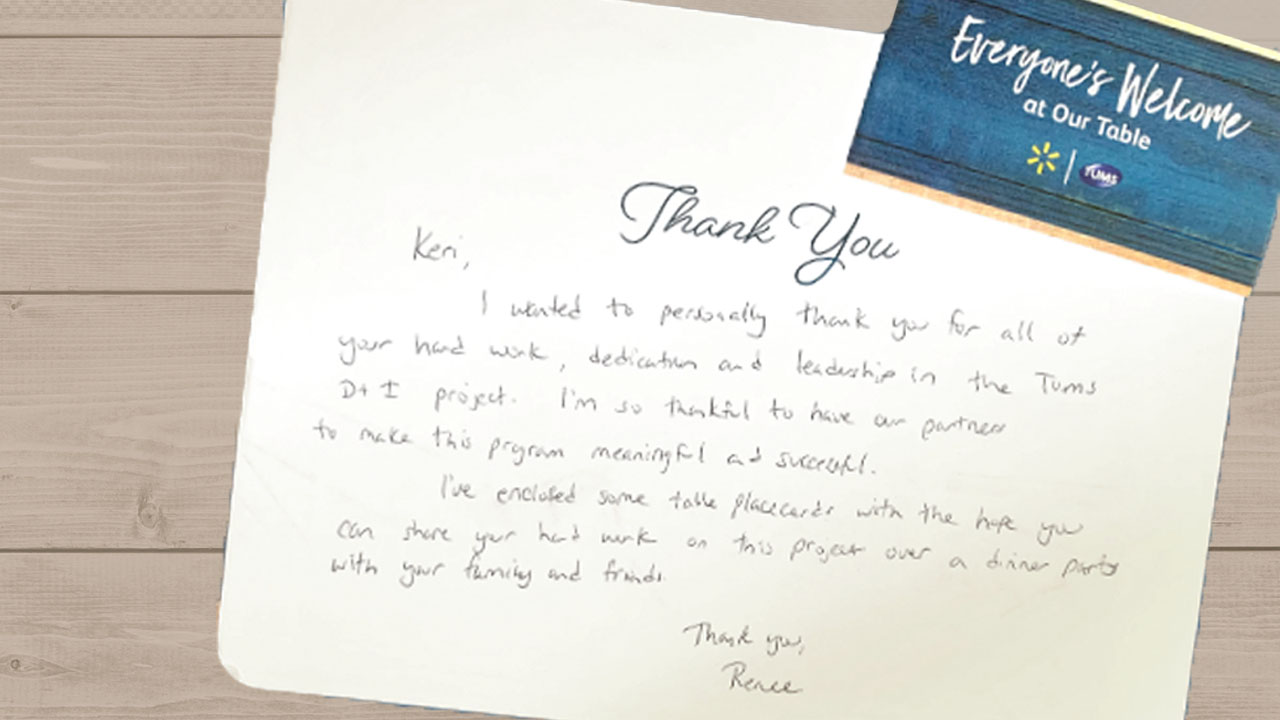 Everyone's Welcome
at Our Table
TUMS
Thank You
Keri,
I wanted to personally thank you for all of
your hard work, dedication and leadership in the Tums
D+I project. I'm so thankful to have our partners
to make this program meaningful and successful.
I've enclosed some table placecards with the hope you
can share your hard work on this project over a dinner party
with your family and friends.
Thank you,
Renee